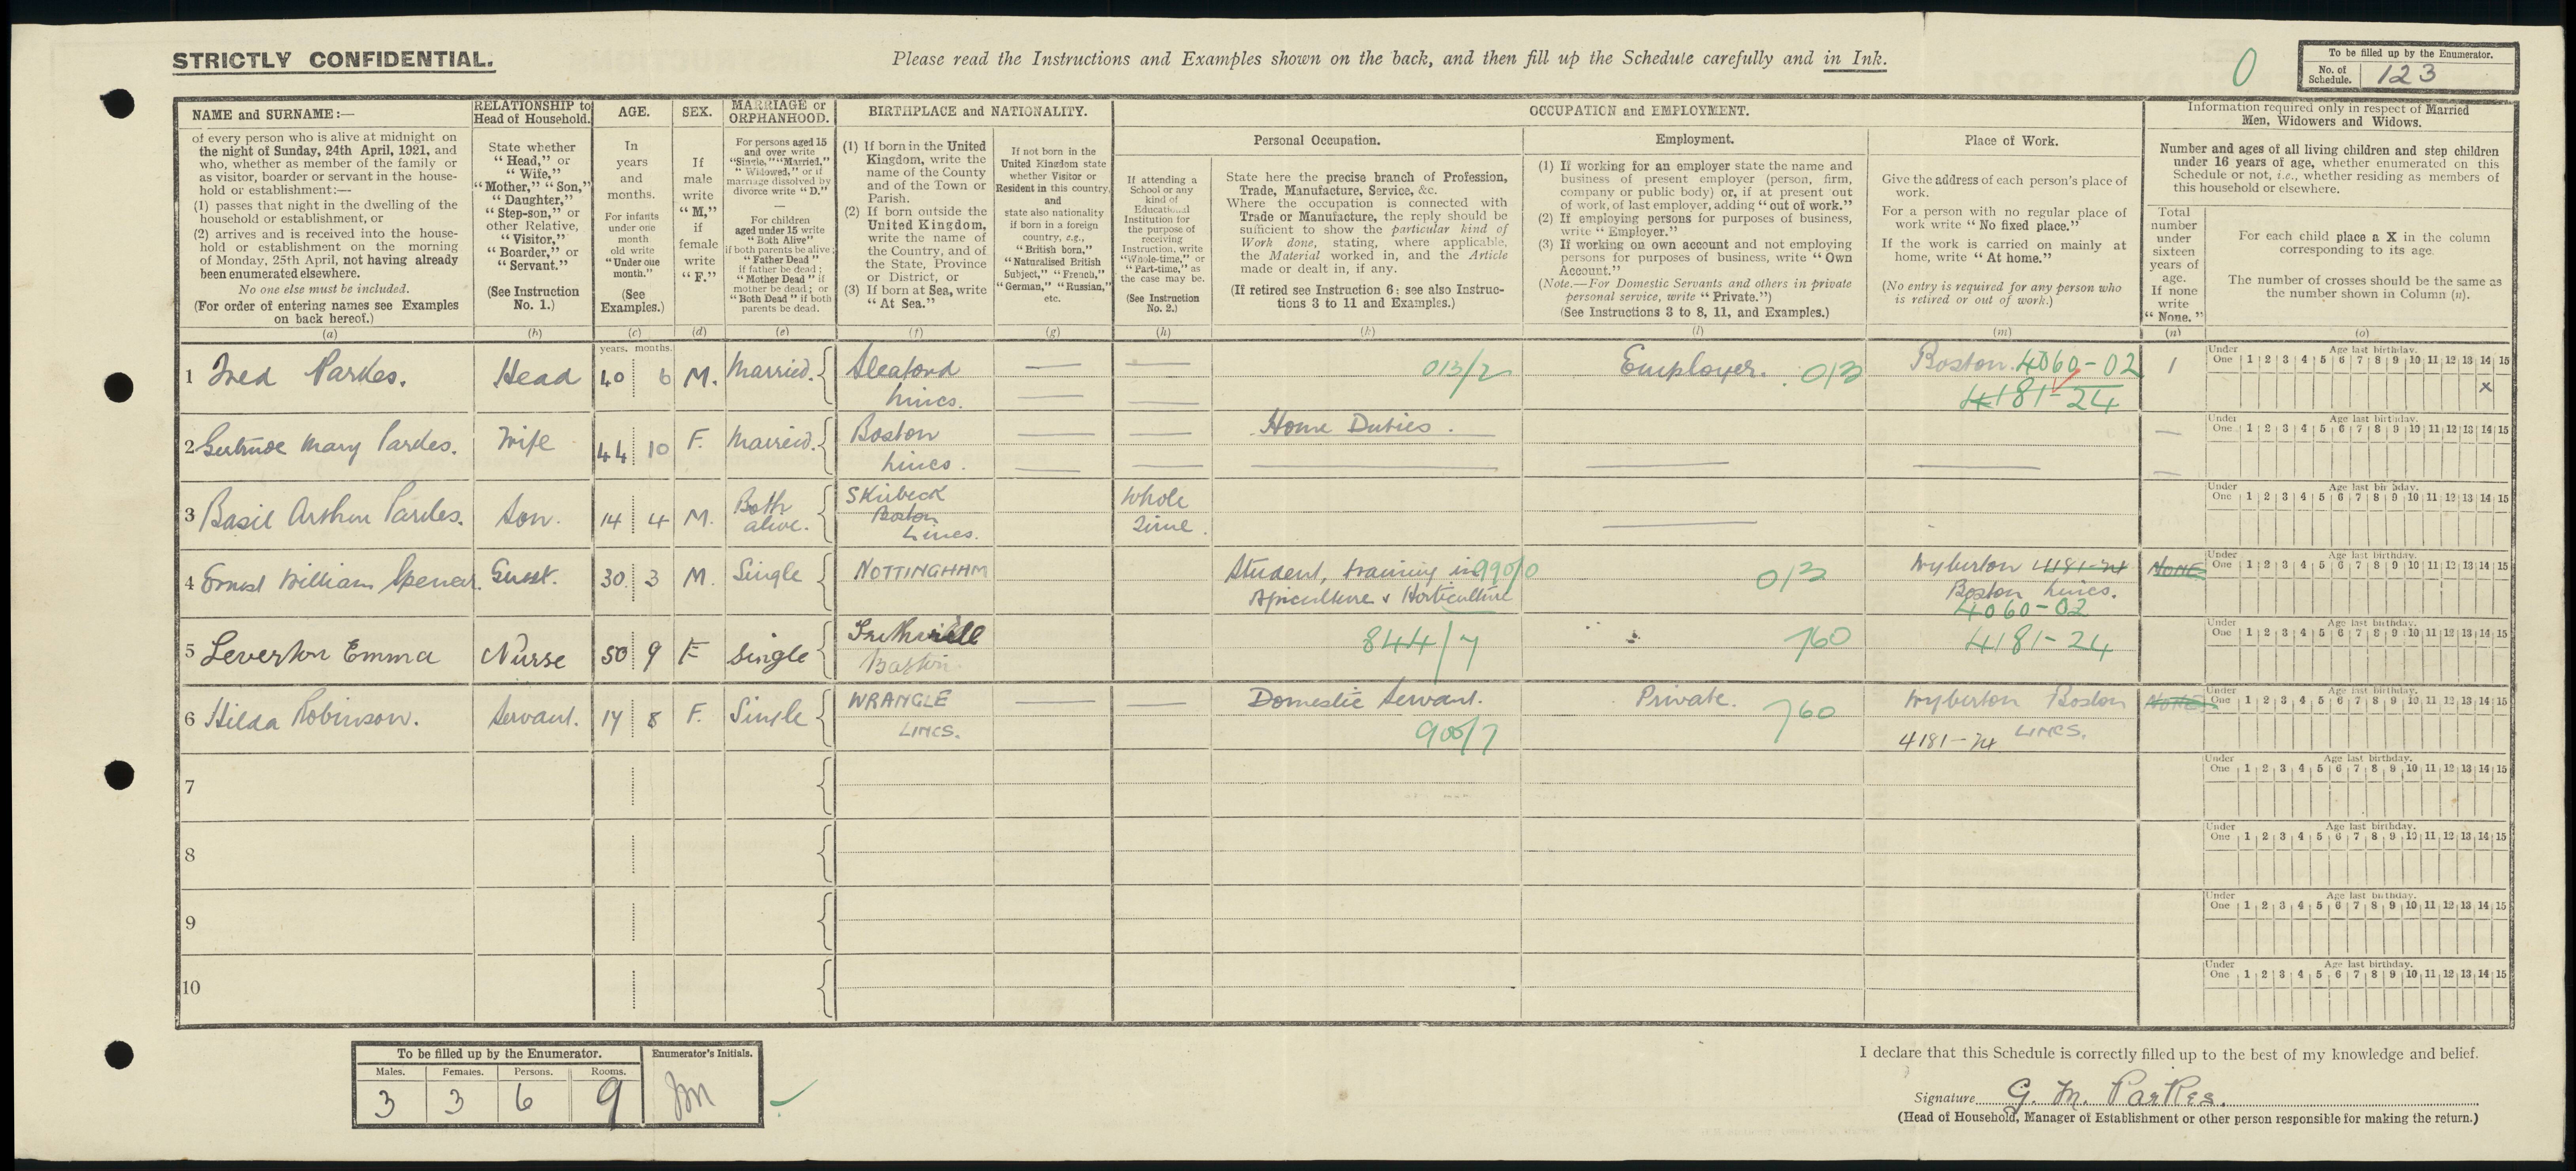 STRICTLY CONFIDENTIAL.
Please read the Instructions and Examples shown on the back, and then fill up the Schedule carefully and in Ink.
0
To be filled up by the Enumerator.
No. of Schedule. 123
NAME and SURNAME:—
of every person who is alive at midnight on
the night of Sunday, 24th April, 1921, and
who, whether as member of the family or
as visitor, boarder or servant in the house-
hold or establishment:—
(1) passes that night in the dwelling of the
household or establishment, or
(2) arrives and is received into the house-
hold or establishment on the morning
of Monday, 25th April, not having already
been enumerated elsewhere.
No one else must be included.
(For order of entering names see Examples
on back hereof.)
(a)
RELATIONSHIP to
Head of Household.
State whether
"Head," or
"Wife,"
"Mother," "Son,"
"Daughter,"
"Step-son," or
other Relative,
"Visitor,"
"Boarder," or
"Servant."
(See Instruction
No. 1.)
(b)
AGE.
In
years
and
months.
For infants
under one
month
old write
"Under one
month."
(See
Examples.)
(c)
SEX.
If
male
write
"M,"
if
female
write
"F."
(d)
MARRIAGE or
ORPHANHOOD.
For persons aged 15
and over write
"Single," "Married,"
"Widowed," or if
marriage dissolved by
divorce write "D."
—
For children
aged under 15 write
"Both Alive"
if both parents be alive;
"Father Dead"
if father be dead;
"Mother Dead" if
mother be dead; or
"Both Dead" if both
parents be dead.
(e)
BIRTHPLACE and NATIONALITY.
(1) If born in the United
Kingdom, write the
name of the County
and of the Town or
Parish.
(2) If born outside the
United Kingdom,
write the name of
the Country, and of
the State, Province
or District, or
(3) If born at Sea, write
"At Sea."
(f)
If not born in the
United Kingdom state
whether Visitor or
Resident in this country,
and
state also nationality
if born in a foreign
country, e.g.,
"British born,"
"Naturalised British
Subject," "French,"
"German," "Russian,"
etc.
(g)
OCCUPATION and EMPLOYMENT.
If attending a
School or any
kind of
Educational
Institution for
the purpose of
receiving
Instruction, write
"Whole-time," or
"Part-time," as
the case may be.
(See Instruction
No. 2.)
(h)
Personal Occupation.
State here the precise branch of Profession,
Trade, Manufacture, Service, &c.
Where the occupation is connected with
Trade or Manufacture, the reply should be
sufficient to show the particular kind of
Work done, stating, where applicable,
the Material worked in, and the Article
made or dealt in, if any.
(If retired see Instruction 6; see also Instruc-
tions 3 to 11 and Examples.)
(k)
Employment.
(1) If working for an employer state the name and
business of present employer (person, firm,
company or public body) or, if at present out
of work, of last employer, adding "out of work."
(2) If employing persons for purposes of business,
write "Employer."
(3) If working on own account and not employing
persons for purposes of business, write "Own
Account."
(Note.—For Domestic Servants and others in private
personal service, write "Private.")
(See Instructions 3 to 8, 11, and Examples.)
(l)
Place of Work.
Give the address of each person's place of
work.
For a person with no regular place of
work write "No fixed place."
If the work is carried on mainly at
home, write "At home."
(No entry is required for any person who
is retired or out of work.)
(m)
Information required only in respect of Married
Men, Widowers and Widows.
Number and ages of all living children and step children
under 16 years of age, whether enumerated on this
Schedule or not, i.e., whether residing as members of
this household or elsewhere.
Total
number
under
sixteen
years of
age.
If none
write
"None."
(n)
For each child place a X in the column
corresponding to its age.
The number of crosses should be the same as
the number shown in Column (n).
(o)
years. months.
Under One Age last birthday. 1 2 3 4 5 6 7 8 9 10 11 12 13 14 15
1 Fred Parkes. Head 40 6 M. Married. Sleaford 013/2 Employer. 013 Boston. 4060-02 1 x
Lincs. 4181-24
Under One Age last birthday. 1 2 3 4 5 6 7 8 9 10 11 12 13 14 15
2 Gertrude Mary Parkes. Wife 44 10 F. Married. Boston Home Duties.
Lincs.
Under One Age last birthday. 1 2 3 4 5 6 7 8 9 10 11 12 13 14 15
3 Basil Arthur Parkes. Son. 14 4 M. Both alive. Skirbeck Whole Time.
Boston
Lincs.
Under One Age last birthday. 1 2 3 4 5 6 7 8 9 10 11 12 13 14 15
4 Ernest William Spencer. Guest. 30 3 M. Single NOTTINGHAM Student, training in 990/0 013 Wyberton 4181-24 NONE
Agriculture & Horticulture Boston Lincs.
4060-02
Under One Age last birthday. 1 2 3 4 5 6 7 8 9 10 11 12 13 14 15
5 Leverton Emma Nurse 50 9 F Single Frithville 844/7 760 4181-24
Boston
Under One Age last birthday. 1 2 3 4 5 6 7 8 9 10 11 12 13 14 15
6 Hilda Robinson. Servant. 17 8 F. Single WRANGLE Domestic Servant. Private. 760 Wyberton Boston NONE
LINCS. 900/7 4181-24 LINCS.
Under One Age last birthday. 1 2 3 4 5 6 7 8 9 10 11 12 13 14 15
7
Under One Age last birthday. 1 2 3 4 5 6 7 8 9 10 11 12 13 14 15
8
Under One Age last birthday. 1 2 3 4 5 6 7 8 9 10 11 12 13 14 15
9
Under One Age last birthday. 1 2 3 4 5 6 7 8 9 10 11 12 13 14 15
10
To be filled up by the Enumerator. Enumerator's Initials.
Males. Females. Persons. Rooms.
3 3 6 9
I declare that this Schedule is correctly filled up to the best of my knowledge and belief.
Signature G. M. Parkes.
(Head of Household, Manager of Establishment or other person responsible for making the return.)